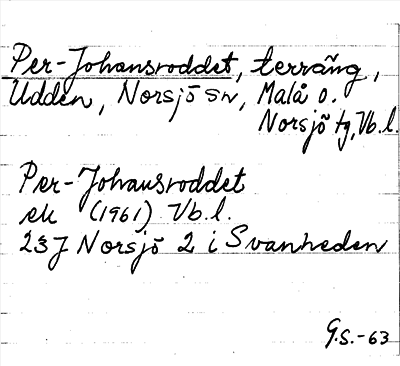 Per-Johansroddet, terräng,
Udden, Norsjö sn, Malå o.
Norsjö tg, Vb.l.
Per-Johansroddet
ek (1961) Vb.l.
23J Norsjö 2 i Svanheden
G.S.-63